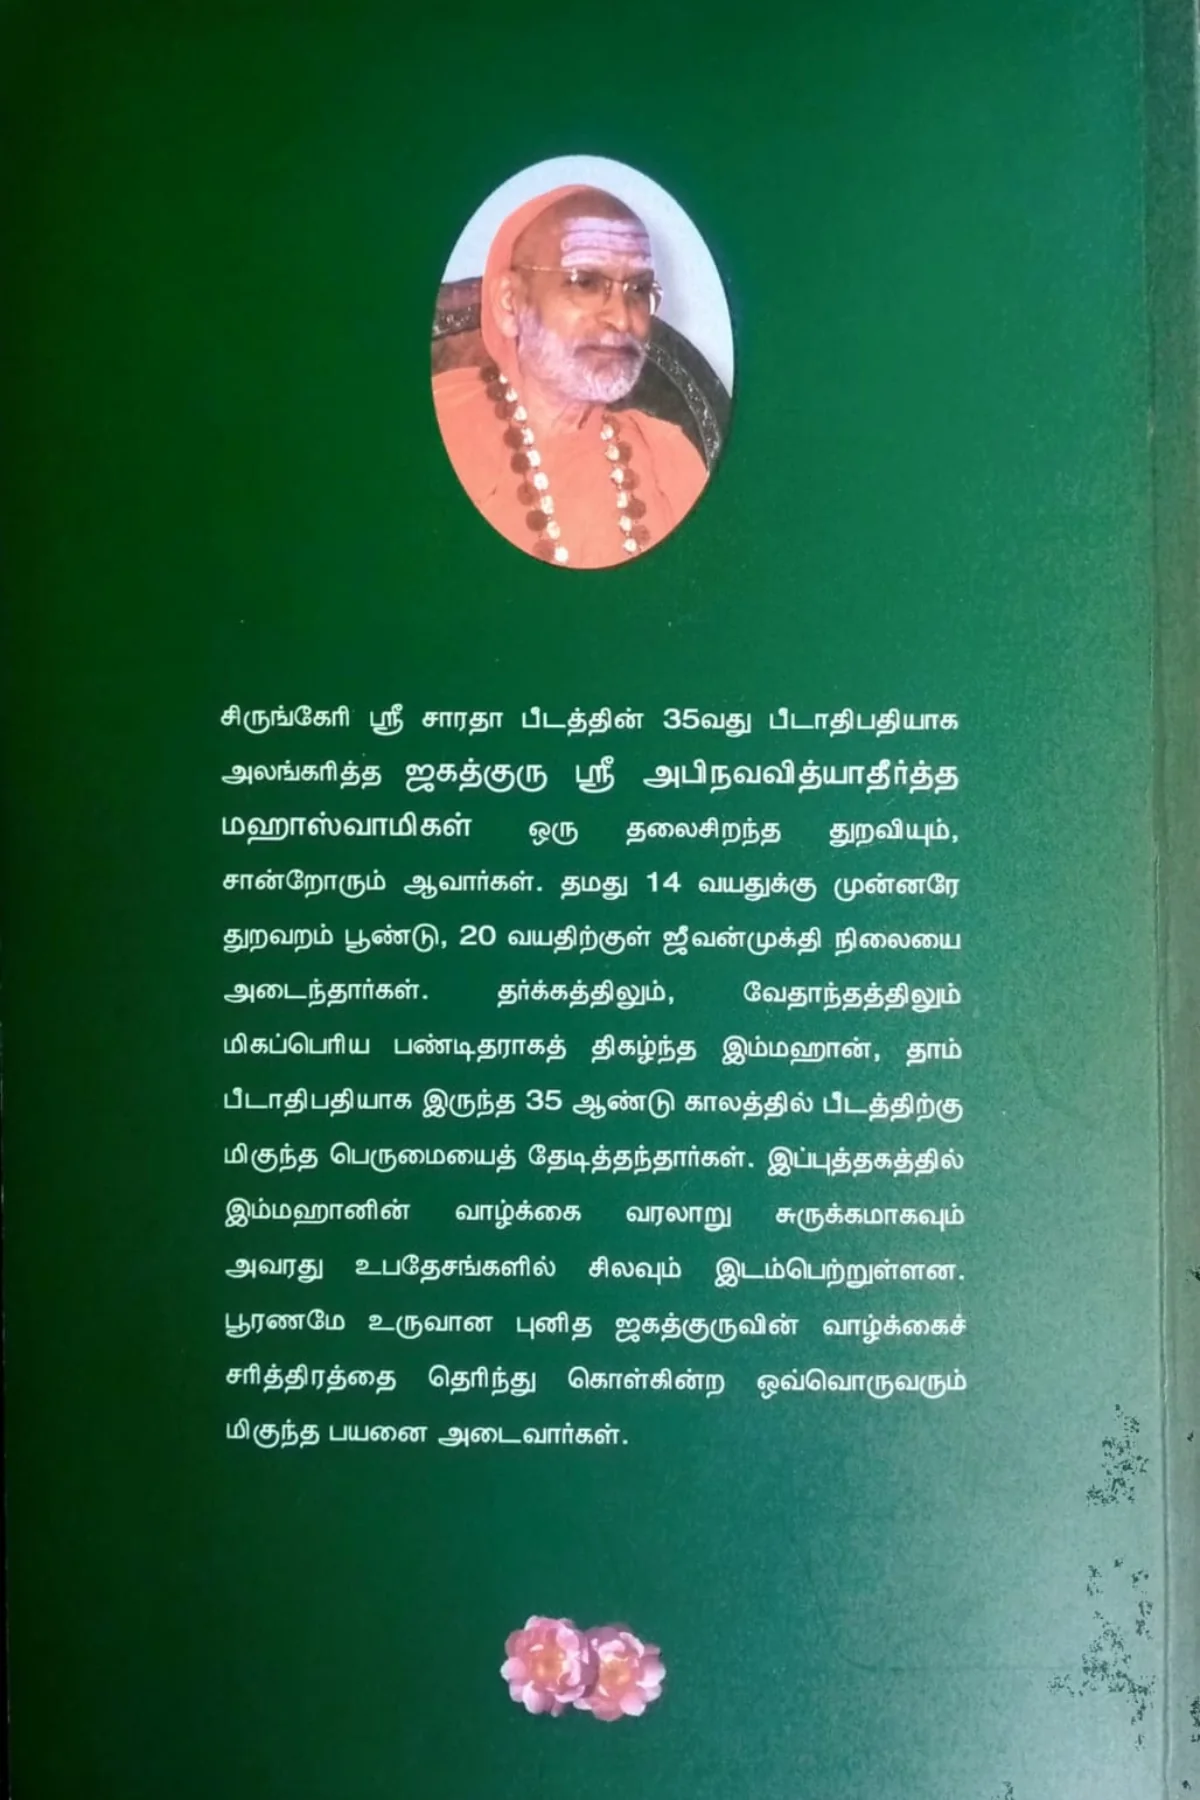 சிருங்கேரி ஸ்ரீ சாரதா பீடத்தின் 35வது பீடாதிபதியாக
அலங்கரித்த ஜகத்குரு ஸ்ரீ அபிநவவித்யாதீர்த்த
மஹாஸ்வாமிகள் ஒரு தலைசிறந்த துறவியும்,
சான்றோரும் ஆவார்கள். தமது 14 வயதுக்கு முன்னரே
துறவறம் பூண்டு, 20 வயதிற்குள் ஜீவன்முக்தி நிலையை
அடைந்தார்கள். தர்க்கத்திலும், வேதாந்தத்திலும்
மிகப்பெரிய பண்டிதராகத் திகழ்ந்த இம்மஹான், தாம்
பீடாதிபதியாக இருந்த 35 ஆண்டு காலத்தில் பீடத்திற்கு
மிகுந்த பெருமையைத் தேடித்தந்தார்கள். இப்புத்தகத்தில்
இம்மஹானின் வாழ்க்கை வரலாறு சுருக்கமாகவும்
அவரது உபதேசங்களில் சிலவும் இடம்பெற்றுள்ளன.
பூரணமே உருவான புனித ஜகத்குருவின் வாழ்க்கைச்
சரித்திரத்தை தெரிந்து கொள்கின்ற ஒவ்வொருவரும்
மிகுந்த பயனை அடைவார்கள்.